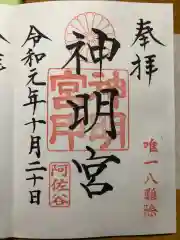 奉拝
唯一八難除
神明宮
神明宮
阿佐谷
令和元年十月二十日